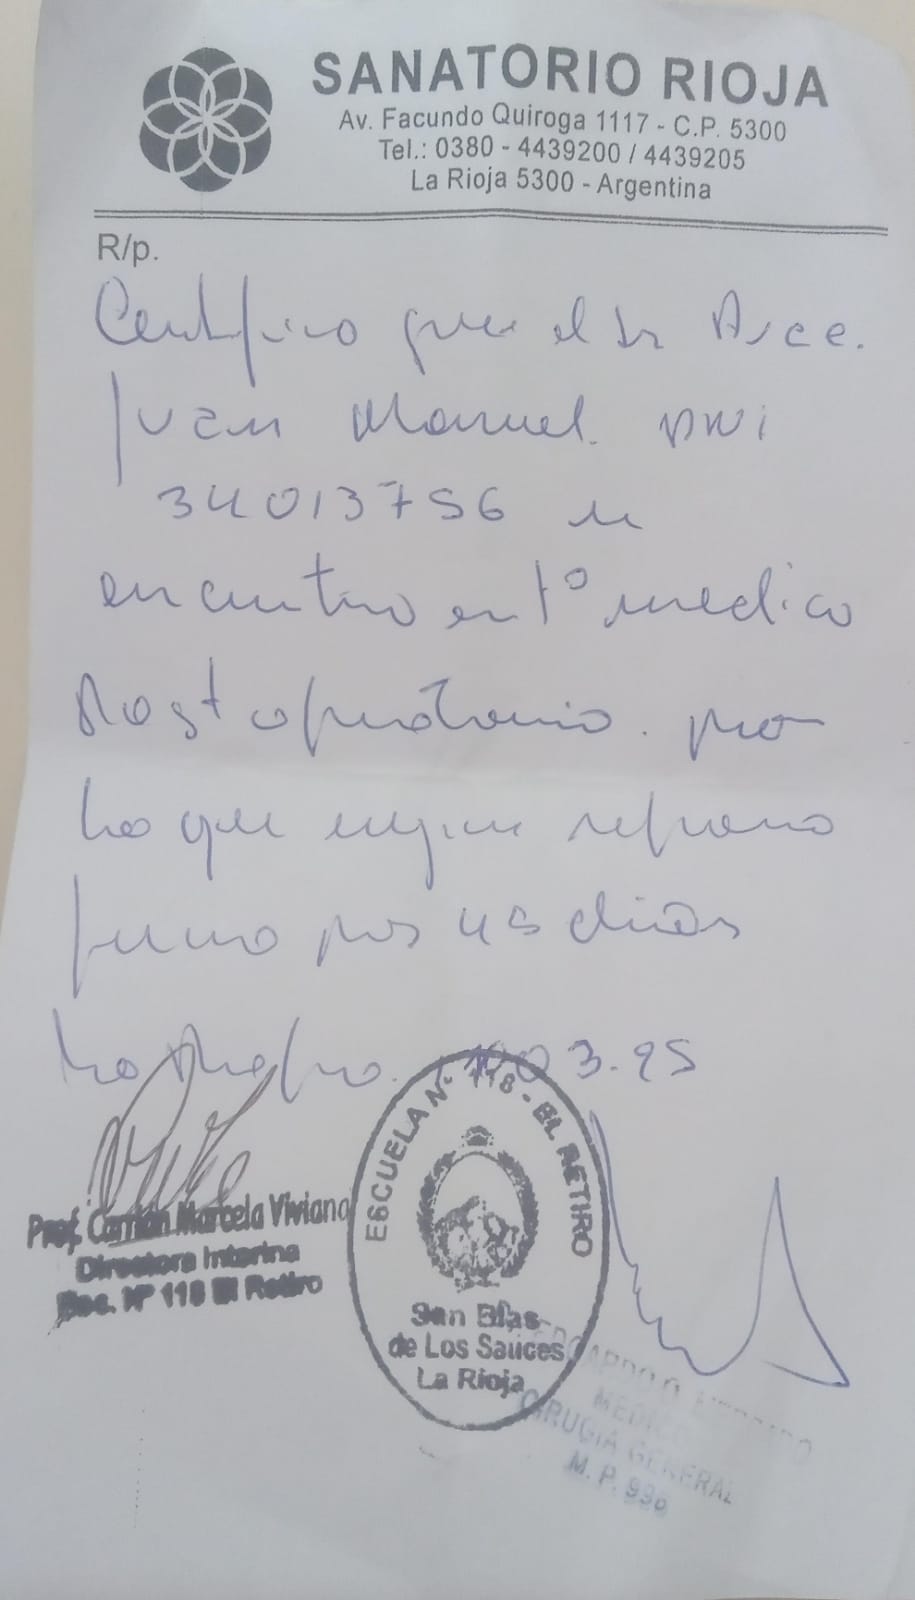 SANATORIO RIOJA
Av. Facundo Quiroga 1117 - C.P. 5300
Tel.: 0380 - 4439200 / 4439205
La Rioja 5300 - Argentina
R/p.
Certifico que el Sr Arce.
Juan Manuel DNI
34013756 se
encuentra en tº medico
Post operatorio. por
lo que sugiere reposo
por 45 dias
03.25
ESCUELA Nº 118 - EL RETIRO
San Blas
de Los Sauces
La Rioja
Prof. Carrión Marcela Viviana
Directora Interina
Esc. Nº 118 El Retiro
MEDICO
CIRUGIA GENERAL
M. P.